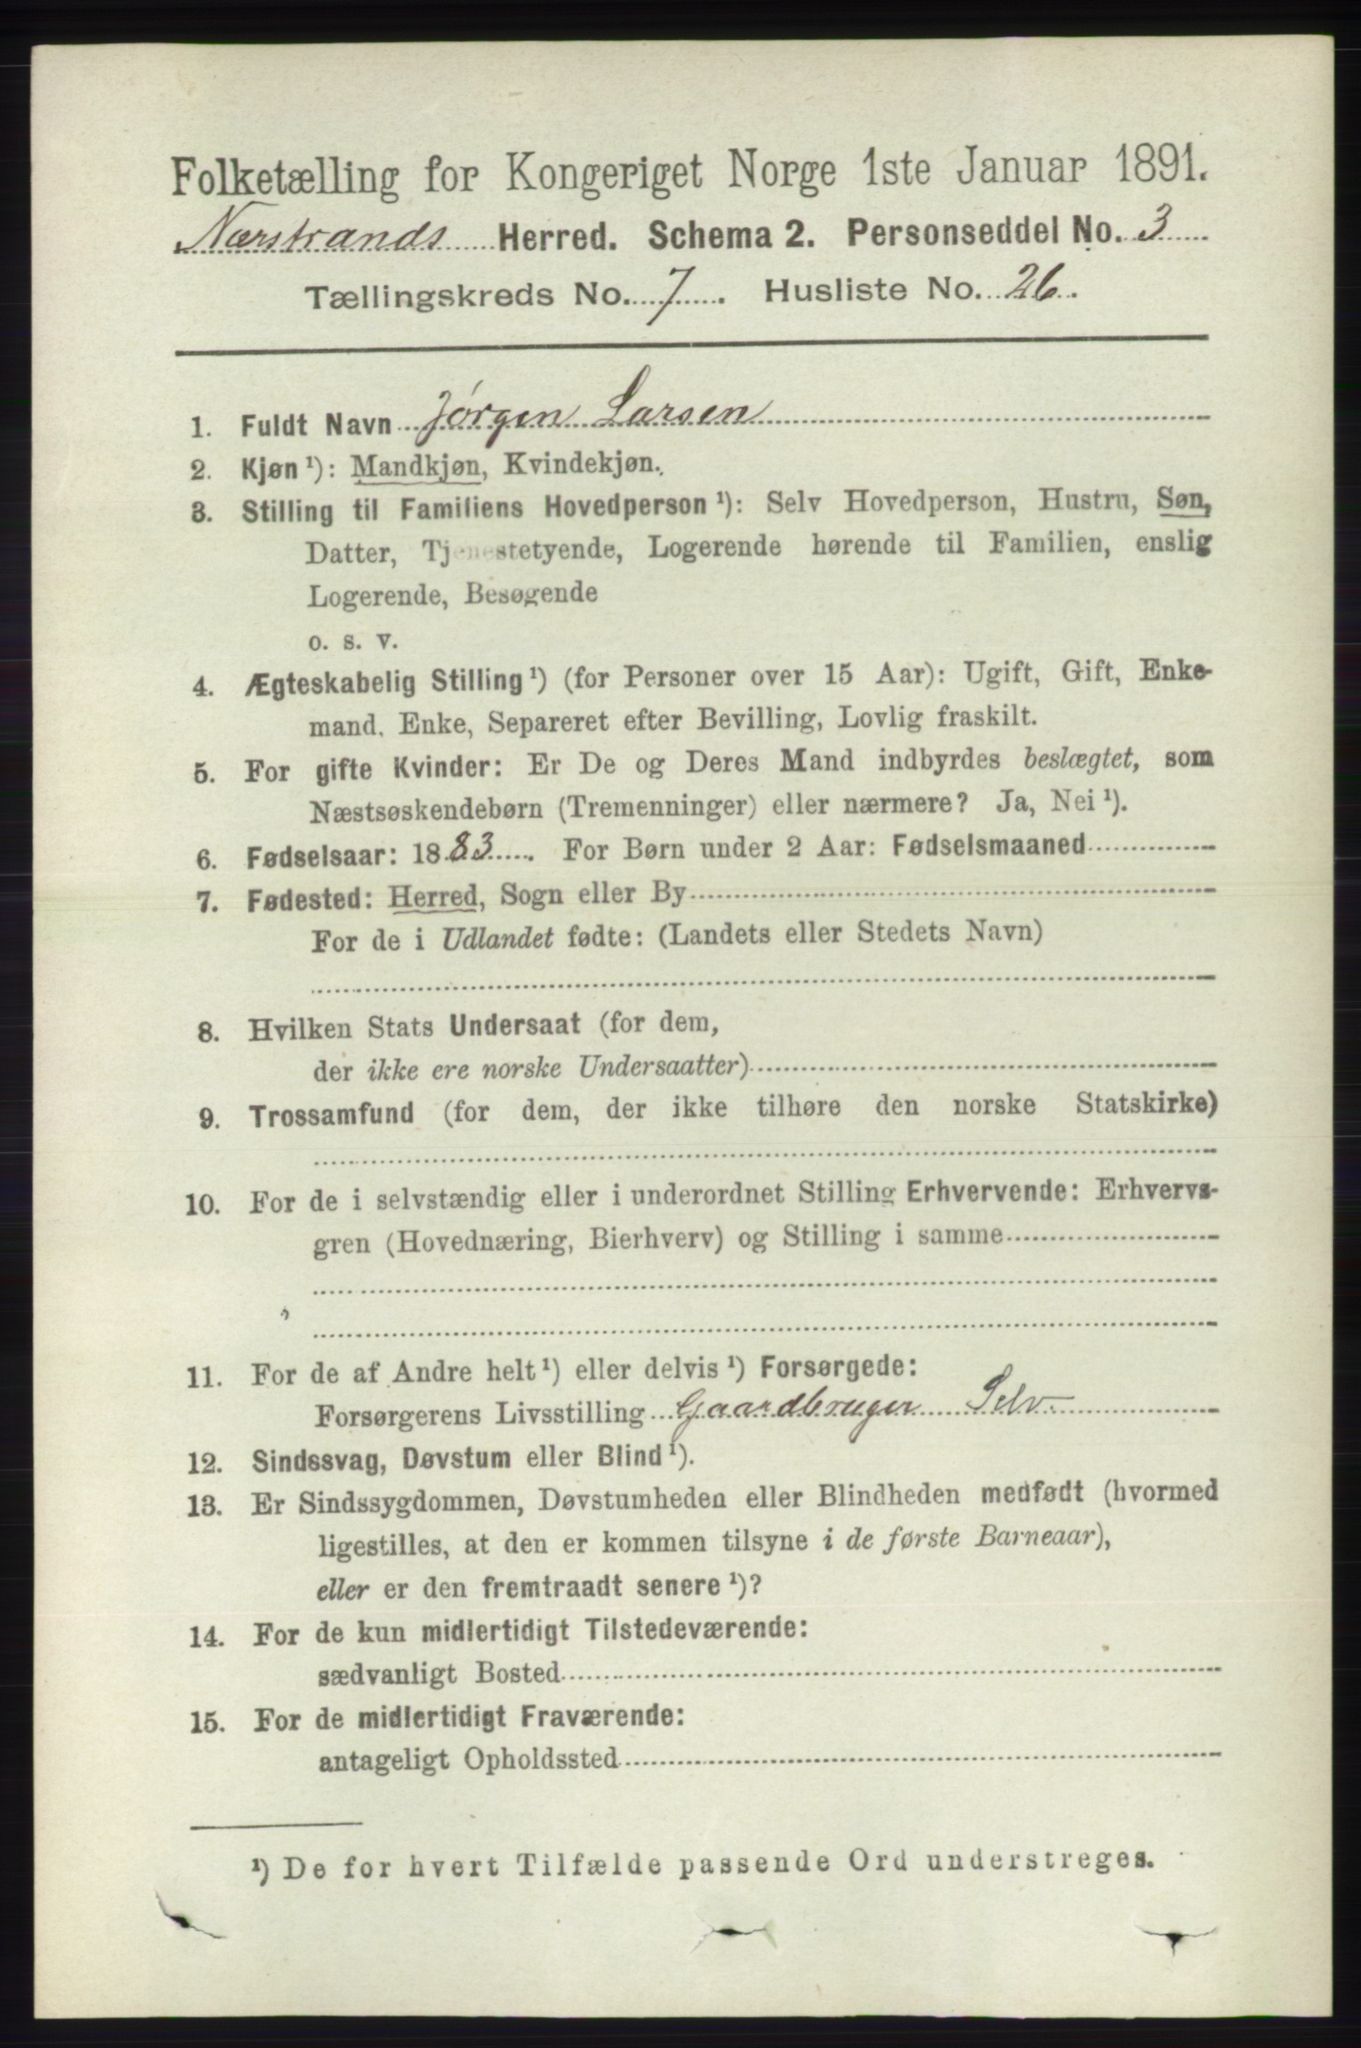 Folketælling for Kongeriget Norge 1ste Januar 1891.
Nærstrands Herred. Schema 2. Personseddel No. 3
Tællingskreds No. 7. Husliste No. 26.
1. Fuldt Navn Jørgen Larsen
2. Kjøn ¹): Mandkjøn, Kvindekjøn.
3. Stilling til Familiens Hovedperson ¹): Selv Hovedperson, Hustru, Søn,
Datter, Tjenestetyende, Logerende hørende til Familien, enslig
Logerende, Besøgende
o. s. v.
4. Ægteskabelig Stilling ¹) (for Personer over 15 Aar): Ugift, Gift, Enke-
mand, Enke, Separeret efter Bevilling, Lovlig fraskilt.
5. For gifte Kvinder: Er De og Deres Mand indbyrdes beslægtet, som
Næstsøskendebørn (Tremenninger) eller nærmere? Ja, Nei ¹).
6. Fødselsaar: 1883. For Børn under 2 Aar: Fødselsmaaned
7. Fødested: Herred, Sogn eller By
For de i Udlandet fødte: (Landets eller Stedets Navn)
8. Hvilken Stats Undersaat (for dem,
der ikke ere norske Undersaatter)
9. Trossamfund (for dem, der ikke tilhøre den norske Statskirke)
10. For de i selvstændig eller i underordnet Stilling Erhvervende: Erhvervs-
gren (Hovednæring, Bierhverv) og Stilling i samme
11. For de af Andre helt ¹) eller delvis ¹) Forsørgede:
Forsørgerens Livsstilling Gaardbruger Selv
12. Sindssvag, Døvstum eller Blind ¹).
13. Er Sindssygdommen, Døvstumheden eller Blindheden medfødt (hvormed
ligestilles, at den er kommen tilsyne i de første Barneaar),
eller er den fremtraadt senere ¹)?
14. For de kun midlertidigt Tilstedeværende:
sædvanligt Bosted
15. For de midlertidigt Fraværende:
antageligt Opholdssted
¹) De for hvert Tilfælde passende Ord understreges.